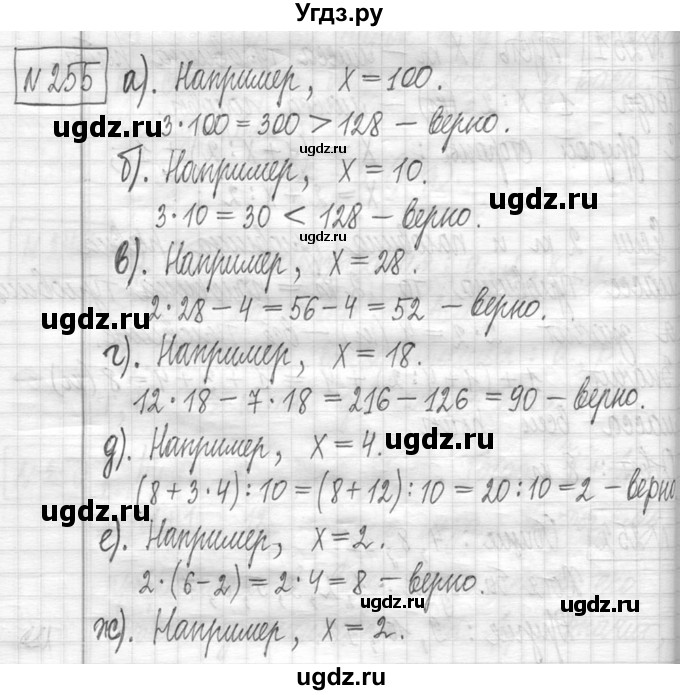 Угдз.ру
N 255 а). Например, x = 100.
3·100 = 300 > 128 – верно.
б). Например, x = 10.
3·10 = 30 < 128 – верно.
в). Например, x = 28.
2·28 – 4 = 56 – 4 = 52 – верно.
г). Например, x = 18.
12·18 – 7·18 = 216 – 126 = 90 – верно.
д). Например, x = 4.
(8 + 3·4) : 10 = (8 + 12) : 10 = 20 : 10 = 2 – верно
е). Например, x = 2.
2·(6 – 2) = 2·4 = 8 – верно.
ж). Например, x = 2.
ugdz.ru
ugdz.ru
ugdz.ru
ugdz.ru
ugdz.ru
ugdz.ru
ugdz.ru
ugdz.ru
ugdz.ru
ugdz.ru